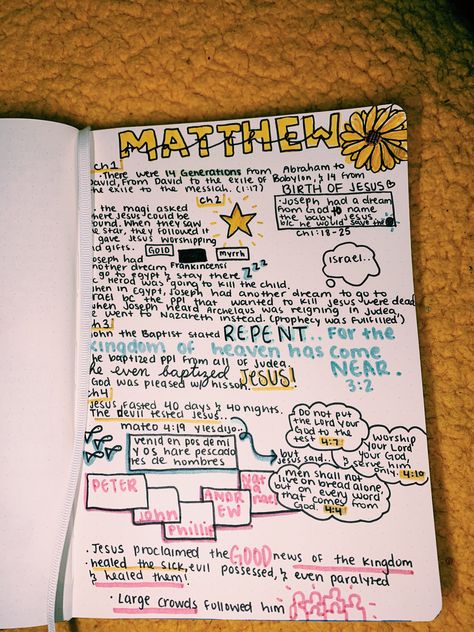 MATTHEW
ch1
• There were 14 Generations from Abraham to
David, From David to the exile of Babylon, & 14 from
the exile to the messiah. (1:17)
BIRTH OF JESUS
• Joseph had a dream
from God to name
the baby Jesus
b/c he would save the
Ch1:18-25
ch2
the magi asked
where Jesus could be
found. When they saw
the star, they followed it
& gave Jesus worshipping
and gifts.
Gold
Frankincense
myrrh
israel...
Joseph had
another dream
to go to egypt & stay there zzz
b/c Herod was going to kill the child.
when in Egypt, Joseph had another dream to go to
Israel b/c the ppl that wanted to kill Jesus were dead
when Joseph heard Archelaus was reigning in Judea,
he went to Nazareth instead. (prophecy was fulfilled)
ch3
John the Baptist stated REPENT.. For the
kingdom of heaven has come
NEAR.
3:2
he baptized ppl from all of Judea
he even baptized JESUS!
God was pleased w/ his son.
ch4
Jesus fasted 40 days & 40 nights.
The devil tested Jesus...
mateo 4:19 y les dijo..
venid en pos de mi
y os hare pescado
res de hombres
but
Jesus said...
Do not put
the Lord your
God to the
test 4:7
worship
your Lord
your God,
& serve him
only. 4:10
men shall not
live on bread alone,
but on every word
that comes from
God. 4:4
PETER
John
Phillip
ANDREW
Nathaniel
• Jesus proclaimed the GOOD news of the kingdom
• healed the sick, evil possessed, & even paralyzed
& healed them!
• Large crowds followed him